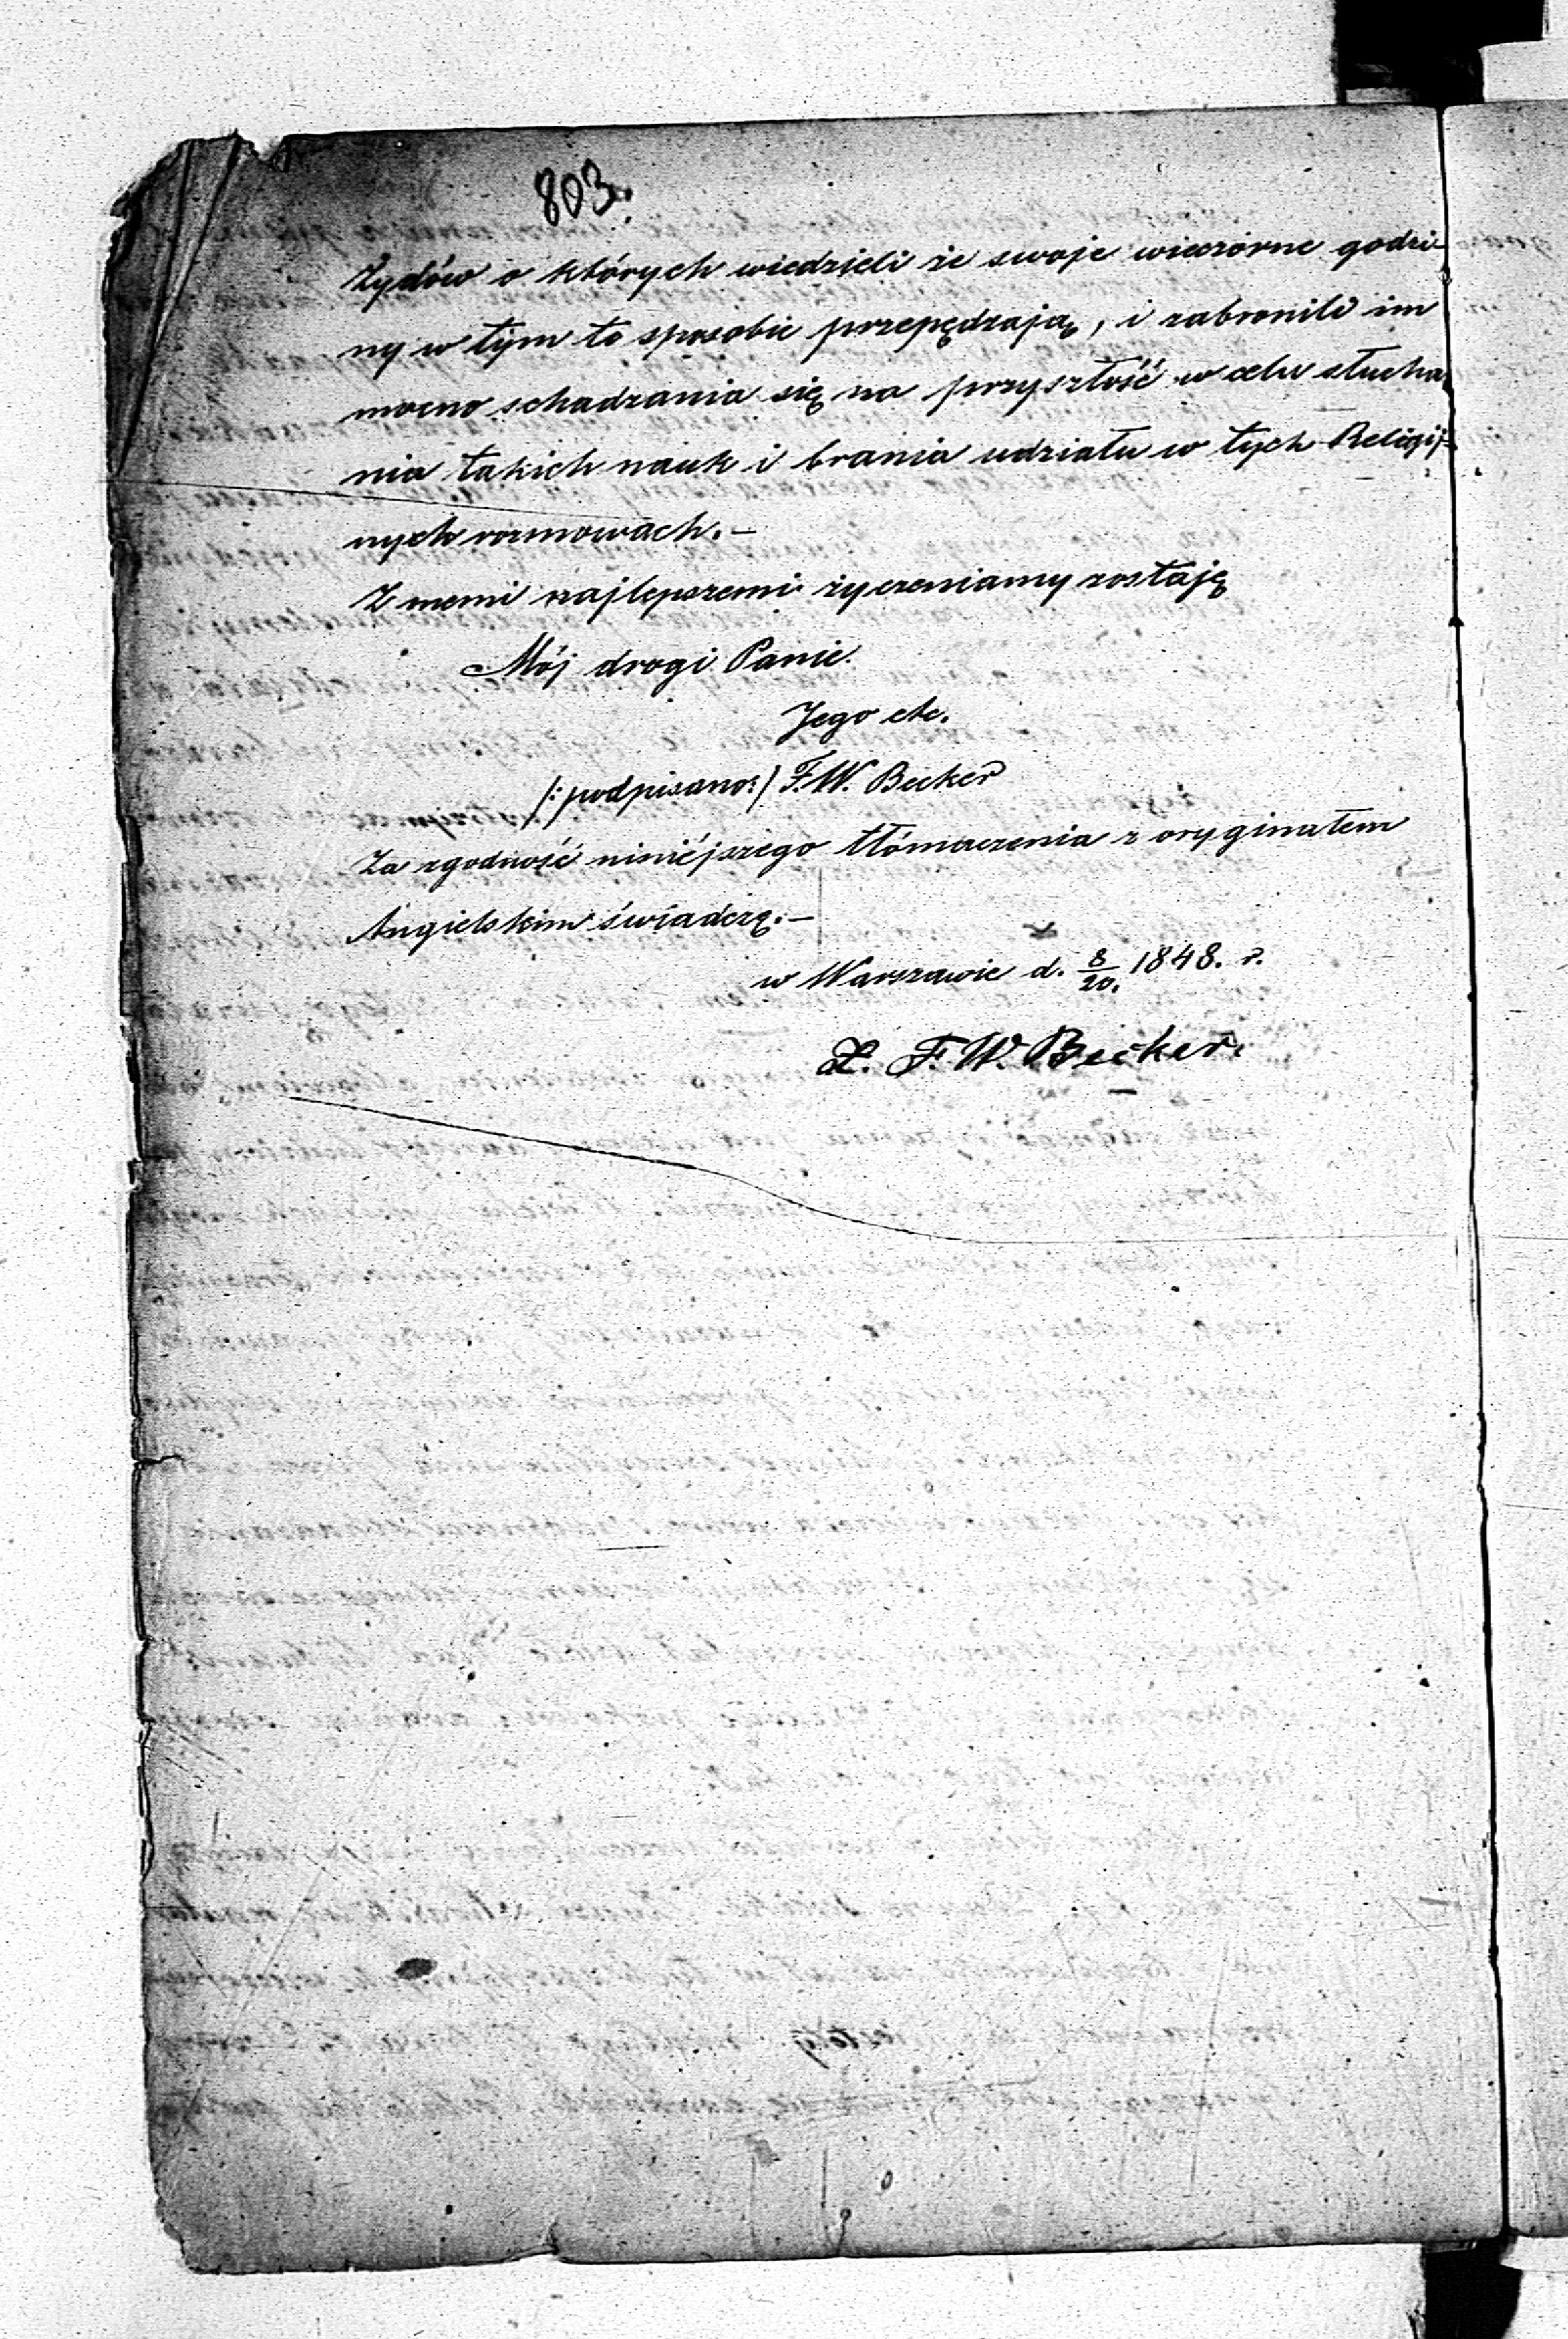 803.
Żydów o których wiedzieli że swoje wieczorne godzi-
ny w tym to sposobie przepędzają, i zabronili im
mocno schadzania się na przyszłość w celu słucha-
nia takich nauk i brania udziału w tych Religij-
nych rozmowach.—
Z memi najlepszemi życzeniamy zostaję
Mój drogi Panie.
Jego etc.
/:podpisano:/ F. W. Becker
Za zgodność niniéjszego tłómaczenia z oryginałem
Angielskim świadczę.—
w Warszawie d. 8/20. 1848. r.
X. F. W. Becker.